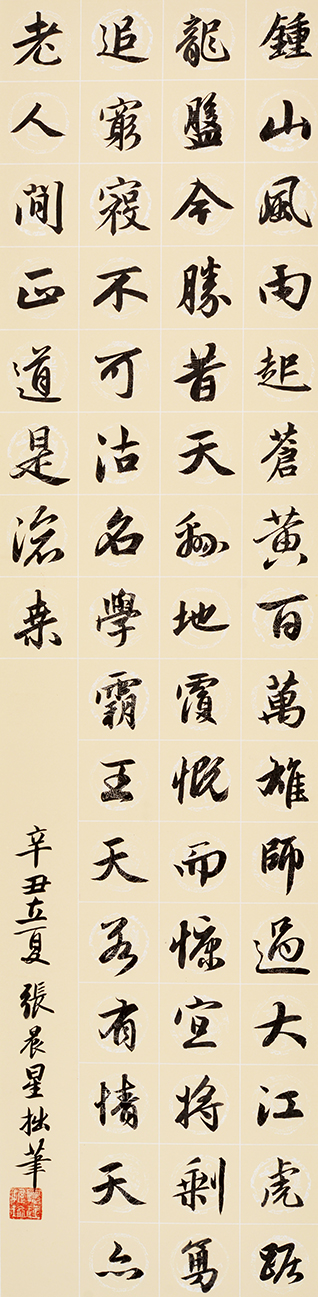 鍾山風雨起蒼黃百萬雄師過大江虎踞
龍盤今勝昔天翻地覆慨而慷宜將剩勇
追窮寇不可沽名學霸王天若有情天亦
老人間正道是滄桒
辛丑立夏張晨星拙筆